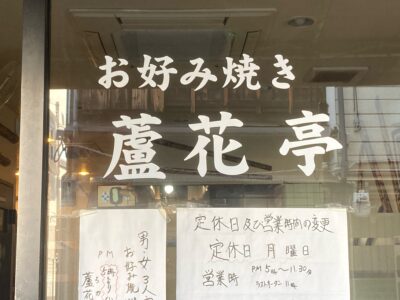 お好み焼き
蘆花亭
定休日及び営業時間の変更
定休日 月曜日
営業時 PM 5時〜11.30分
ラストオーダー 11時
男女3人
お好み焼
PM
蘆花